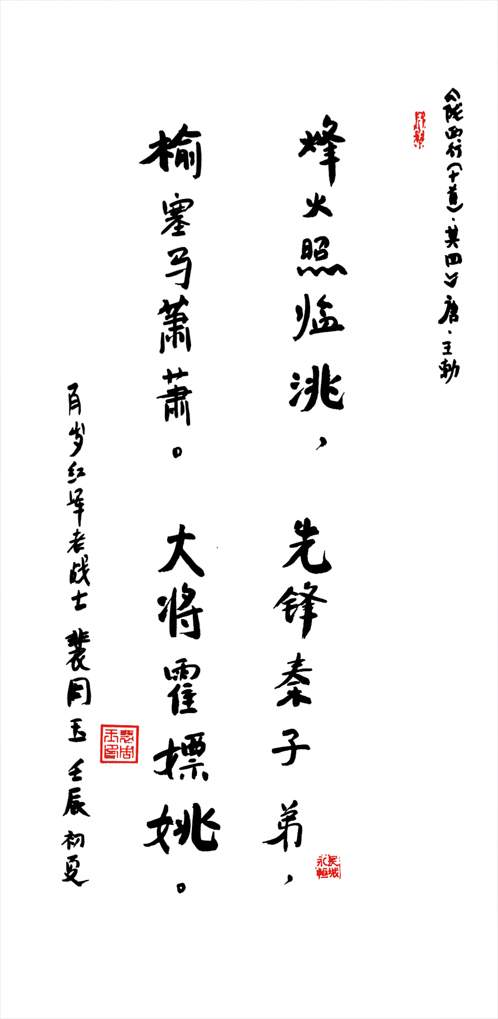 《陇西行(十首)·其四》唐·王勃
烽火照临洮,
榆塞马萧萧。
先锋秦子弟,
大将霍摽姚。
百岁红军老战士 裴周玉 壬辰初夏
长城永恒